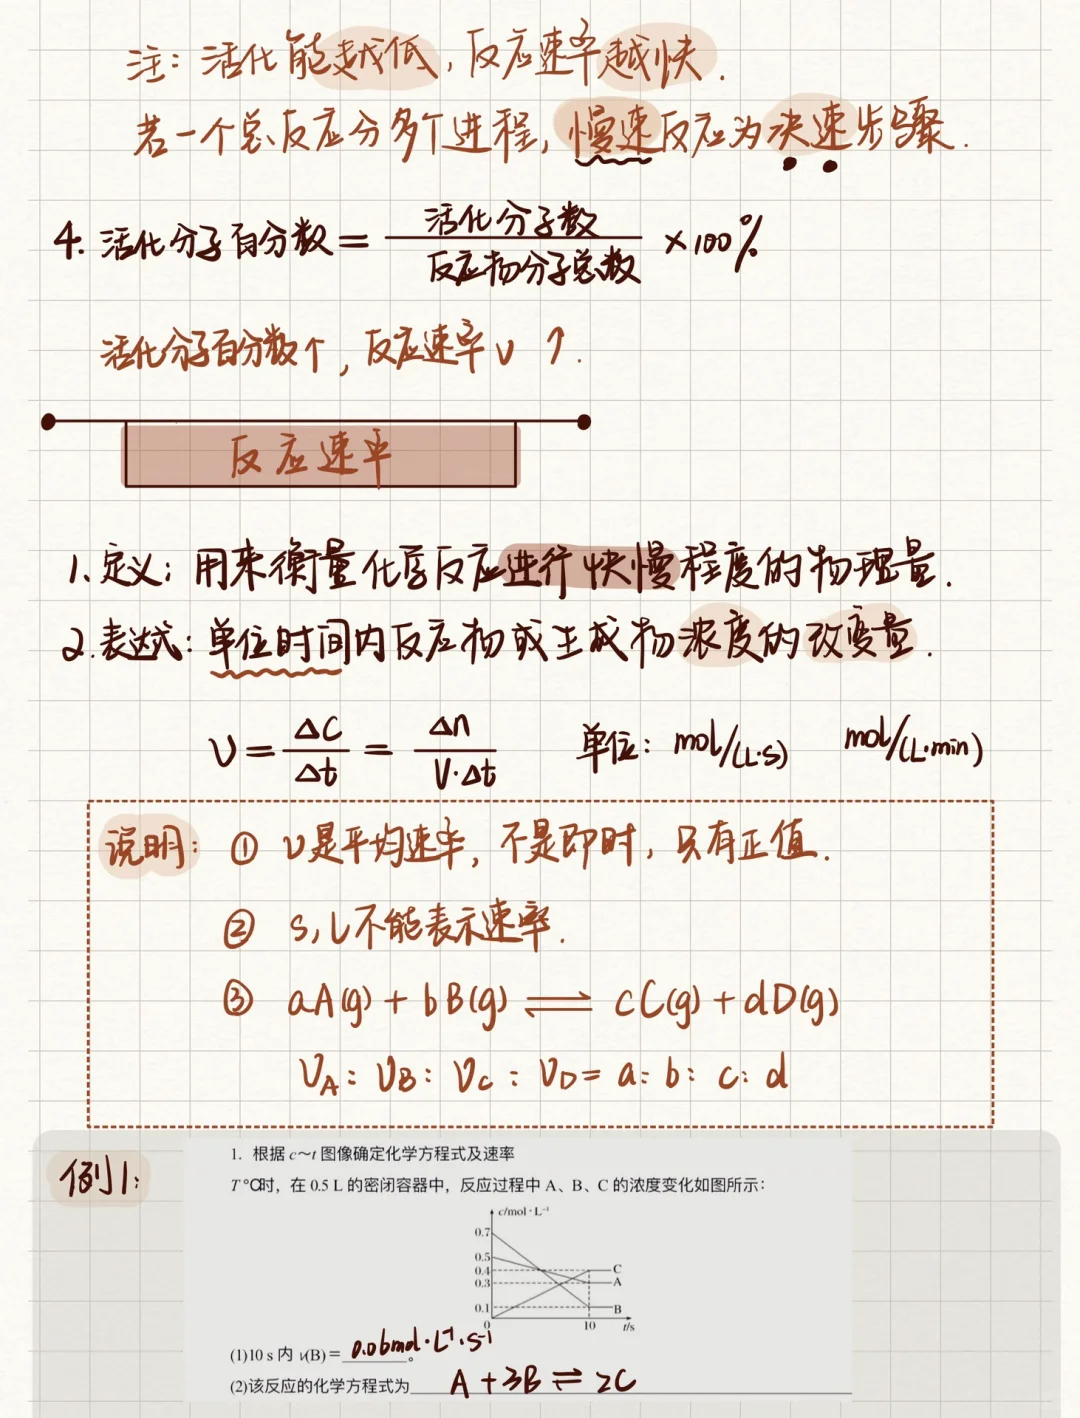 注：活化能越低，反应速率越快．
若一个总反应分多个进程，慢速反应为决速步骤．
4. 活化分子百分数＝活化分子数/反应物分子总数 ×100%
活化分子百分数↑，反应速率υ ↑．
反应速率
1. 定义：用来衡量化学反应进行快慢程度的物理量．
2. 表达式：单位时间内反应物或生成物浓度的改变量．
υ = Δc/Δt = Δn/V·Δt 单位：mol/(L·s) mol/(L·min)
说明：① υ是平均速率，不是即时，只有正值．
② S，L不能表示速率．
③ aA(g) + bB(g) ⇌ cC(g) + dD(g)
υA：υB：υC：υD = a：b：c：d
例1：
1. 根据 c～t 图像确定化学方程式及速率
T ℃时，在 0.5 L 的密闭容器中，反应过程中 A、B、C 的浓度变化如图所示：
c/mol·L⁻¹
0.7
0.5
0.4 C
0.3 A
0.1 B
0 10 t/s
(1)10 s 内 v(B)＝0.06mol·L⁻¹·s⁻¹。
(2)该反应的化学方程式为 A + 3B ⇌ 2C